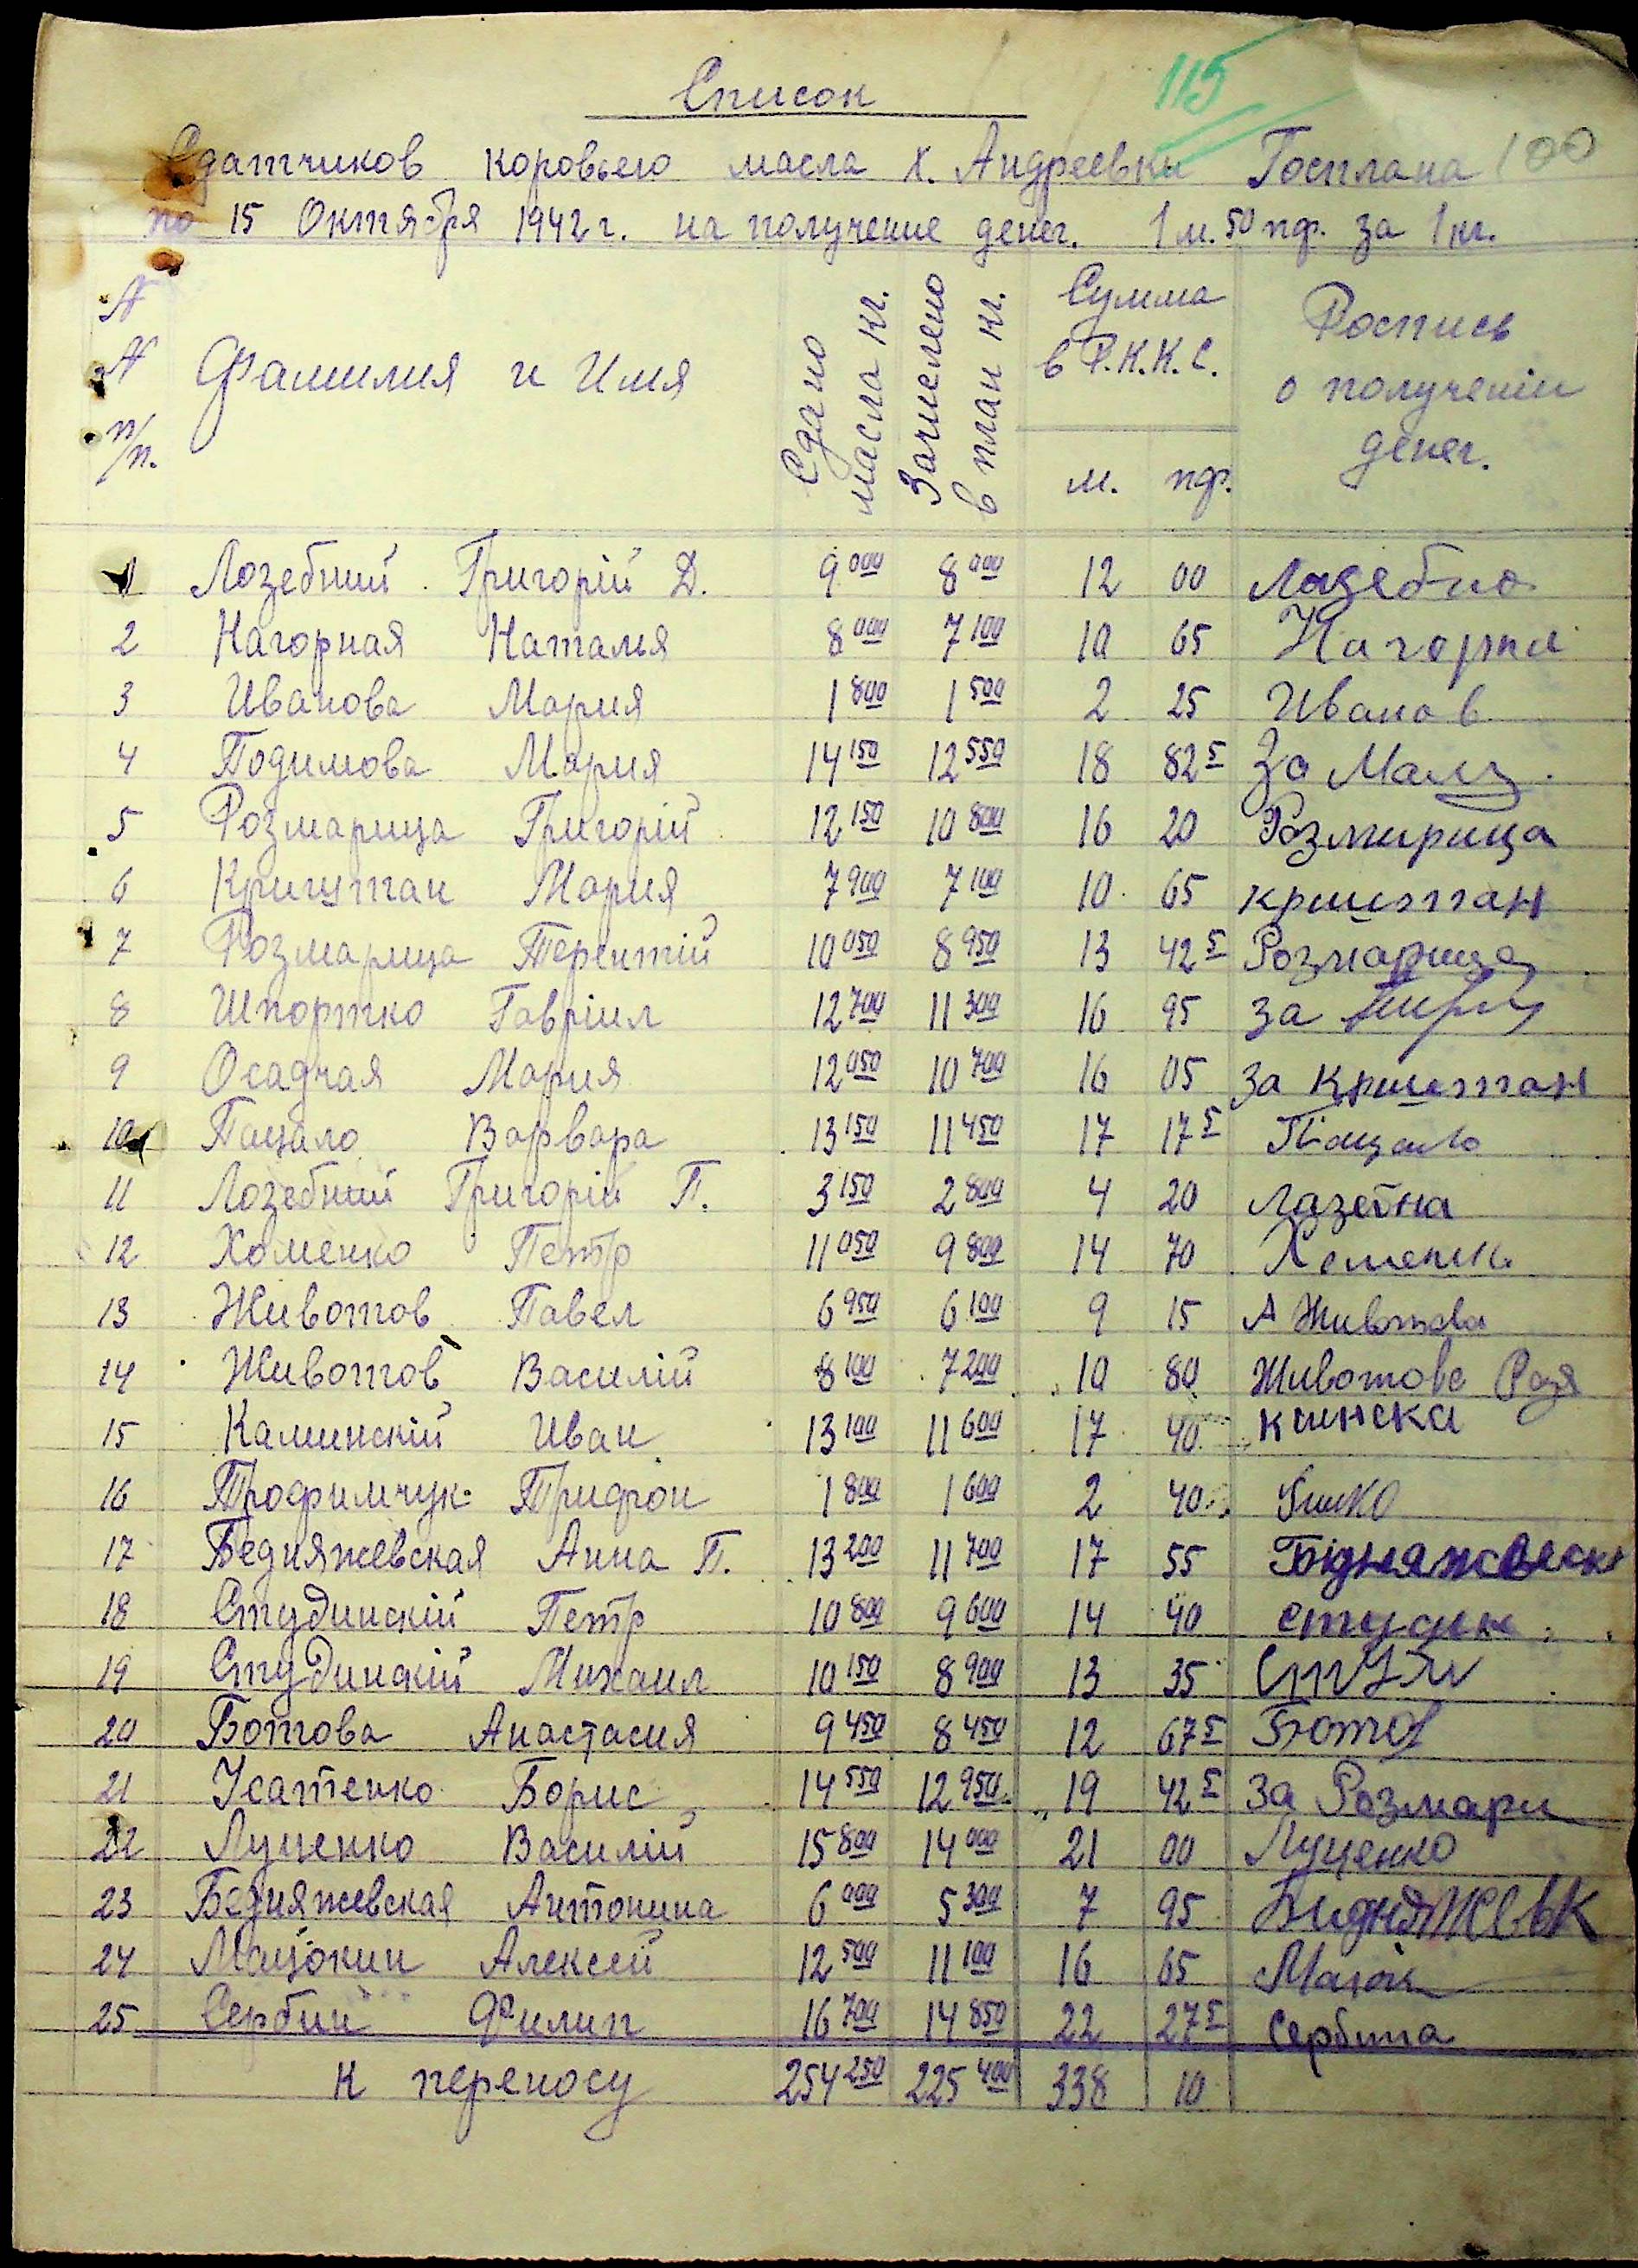 115
Список
100
Сдатчиков коровьего масла х. Андреевки Госплана
по 15 Октября 1942 г. на получение денег. 1 м. 50 пф. за 1 кг.
N N п/п. Фамилия и Имя Сдано масла кг. Зачислено в план кг. Сумма в Р.К.К.С. м. пф. Роспись о получении денег.
1 Лозебний Григорій Д. 9 000 8 000 12 00 Лазебно
2 Нагорная Наталья 8 000 7 100 10 65 Нагорная
3 Иванова Мария 1 800 1 500 2 25 Иванов
4 Подимова Мария 14 150 12 550 18 82 5 За
5 Розмарица Григорій 12 150 10 800 16 20 Розмирица
6 Криштан Мария 7 900 7 100 10 65 криштан
7 Розмарица Терентій 10 050 8 950 13 42 5 Розмарица
8 Шпортко Гавріил 12 700 11 300 16 95 за
9 Осадчая Мария 12 050 10 700 16 05 За Криштан
10 Пацало Варвара 13 150 11 450 17 17 5 Пацало
11 Лозебний Григорій П. 3 150 2 800 4 20 Лазебна
12 Хоменко Петр 11 050 9 800 14 70 Хоменк
13 Животов Павел 6 950 6 100 9 15 А Животова
14 Животов Василій 8 100 7 200 10 80 Животова Рая
15 Каминскій Иван 13 100 11 600 17 40 кминска
16 Трофимчук Трифон 1 800 1 600 2 40
17 Бедняжевская Анна П. 13 200 11 700 17 55 Бідняжевск
18 Студинскій Петр 10 800 9 600 14 40 студин
19 Студинскій Михаил 10 150 8 900 13 35
20 Ботова Анастасия 9 450 8 450 12 67 5 Ботов
21 Усатенко Борис 14 550 12 950 19 42 5 За Розмари
22 Луценко Василій 15 800 14 000 21 00 Луценко
23 Бедняжевская Антонина 6 000 5 300 7 95 Бидняжевк
24 Мацокин Алексей 12 500 11 100 16 65 Мацок
25 Сербин Филип 16 700 14 850 22 27 5 Сербина
К переносу 254 250 225 400 338 10